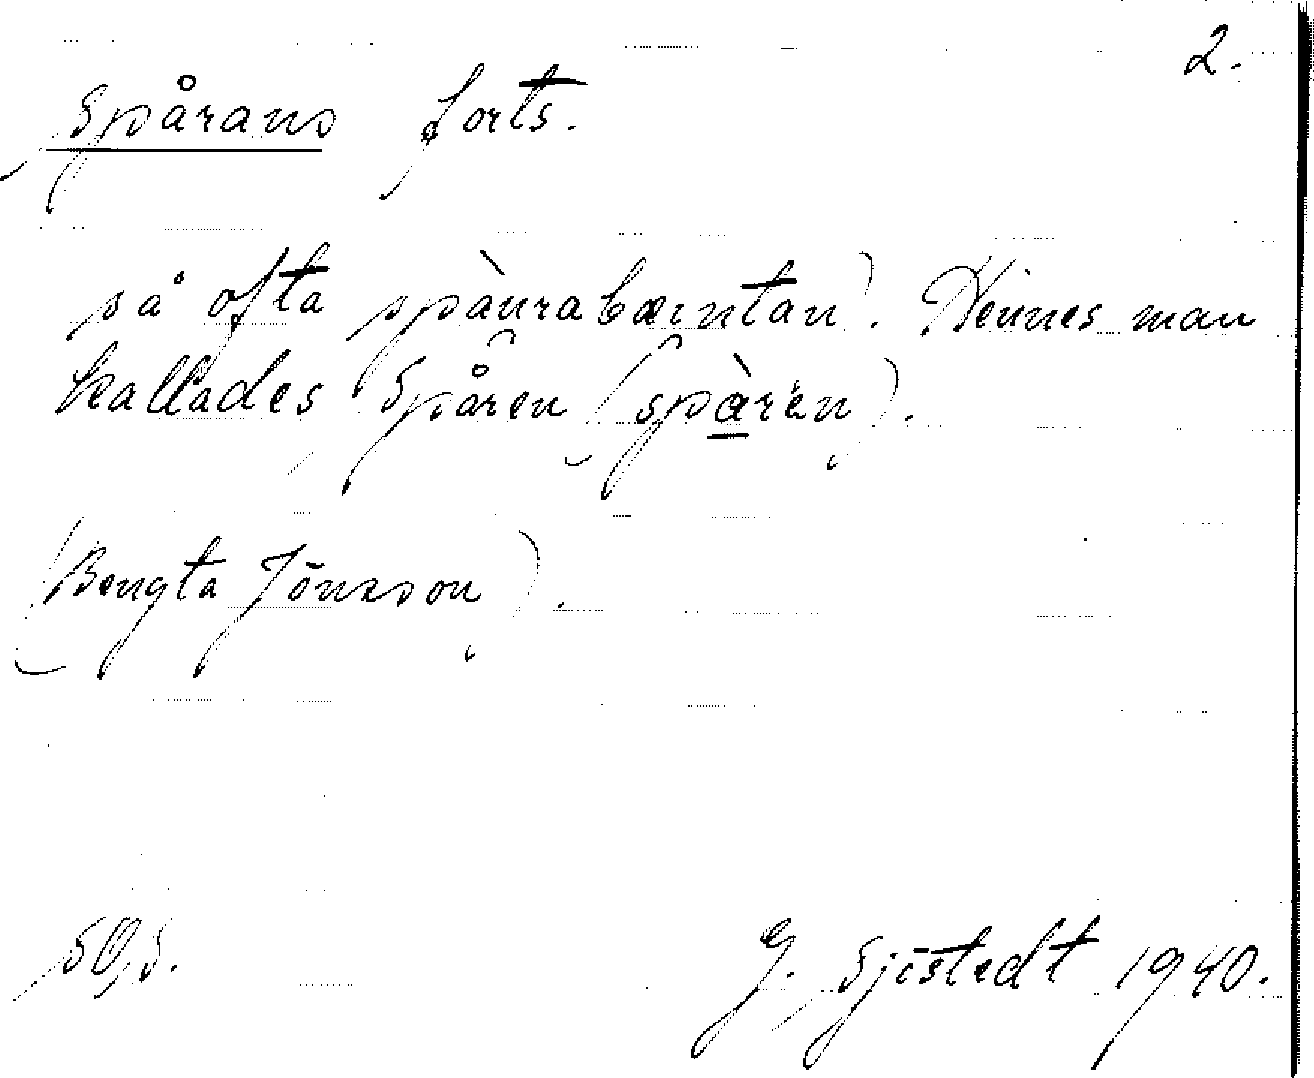 2.
Spårans forts.
så ofta spàurabæintan). Hennes man
kallades Spåren (spàrėn).
(Bengta Jönsson).
G. Sjöstedt 1940.